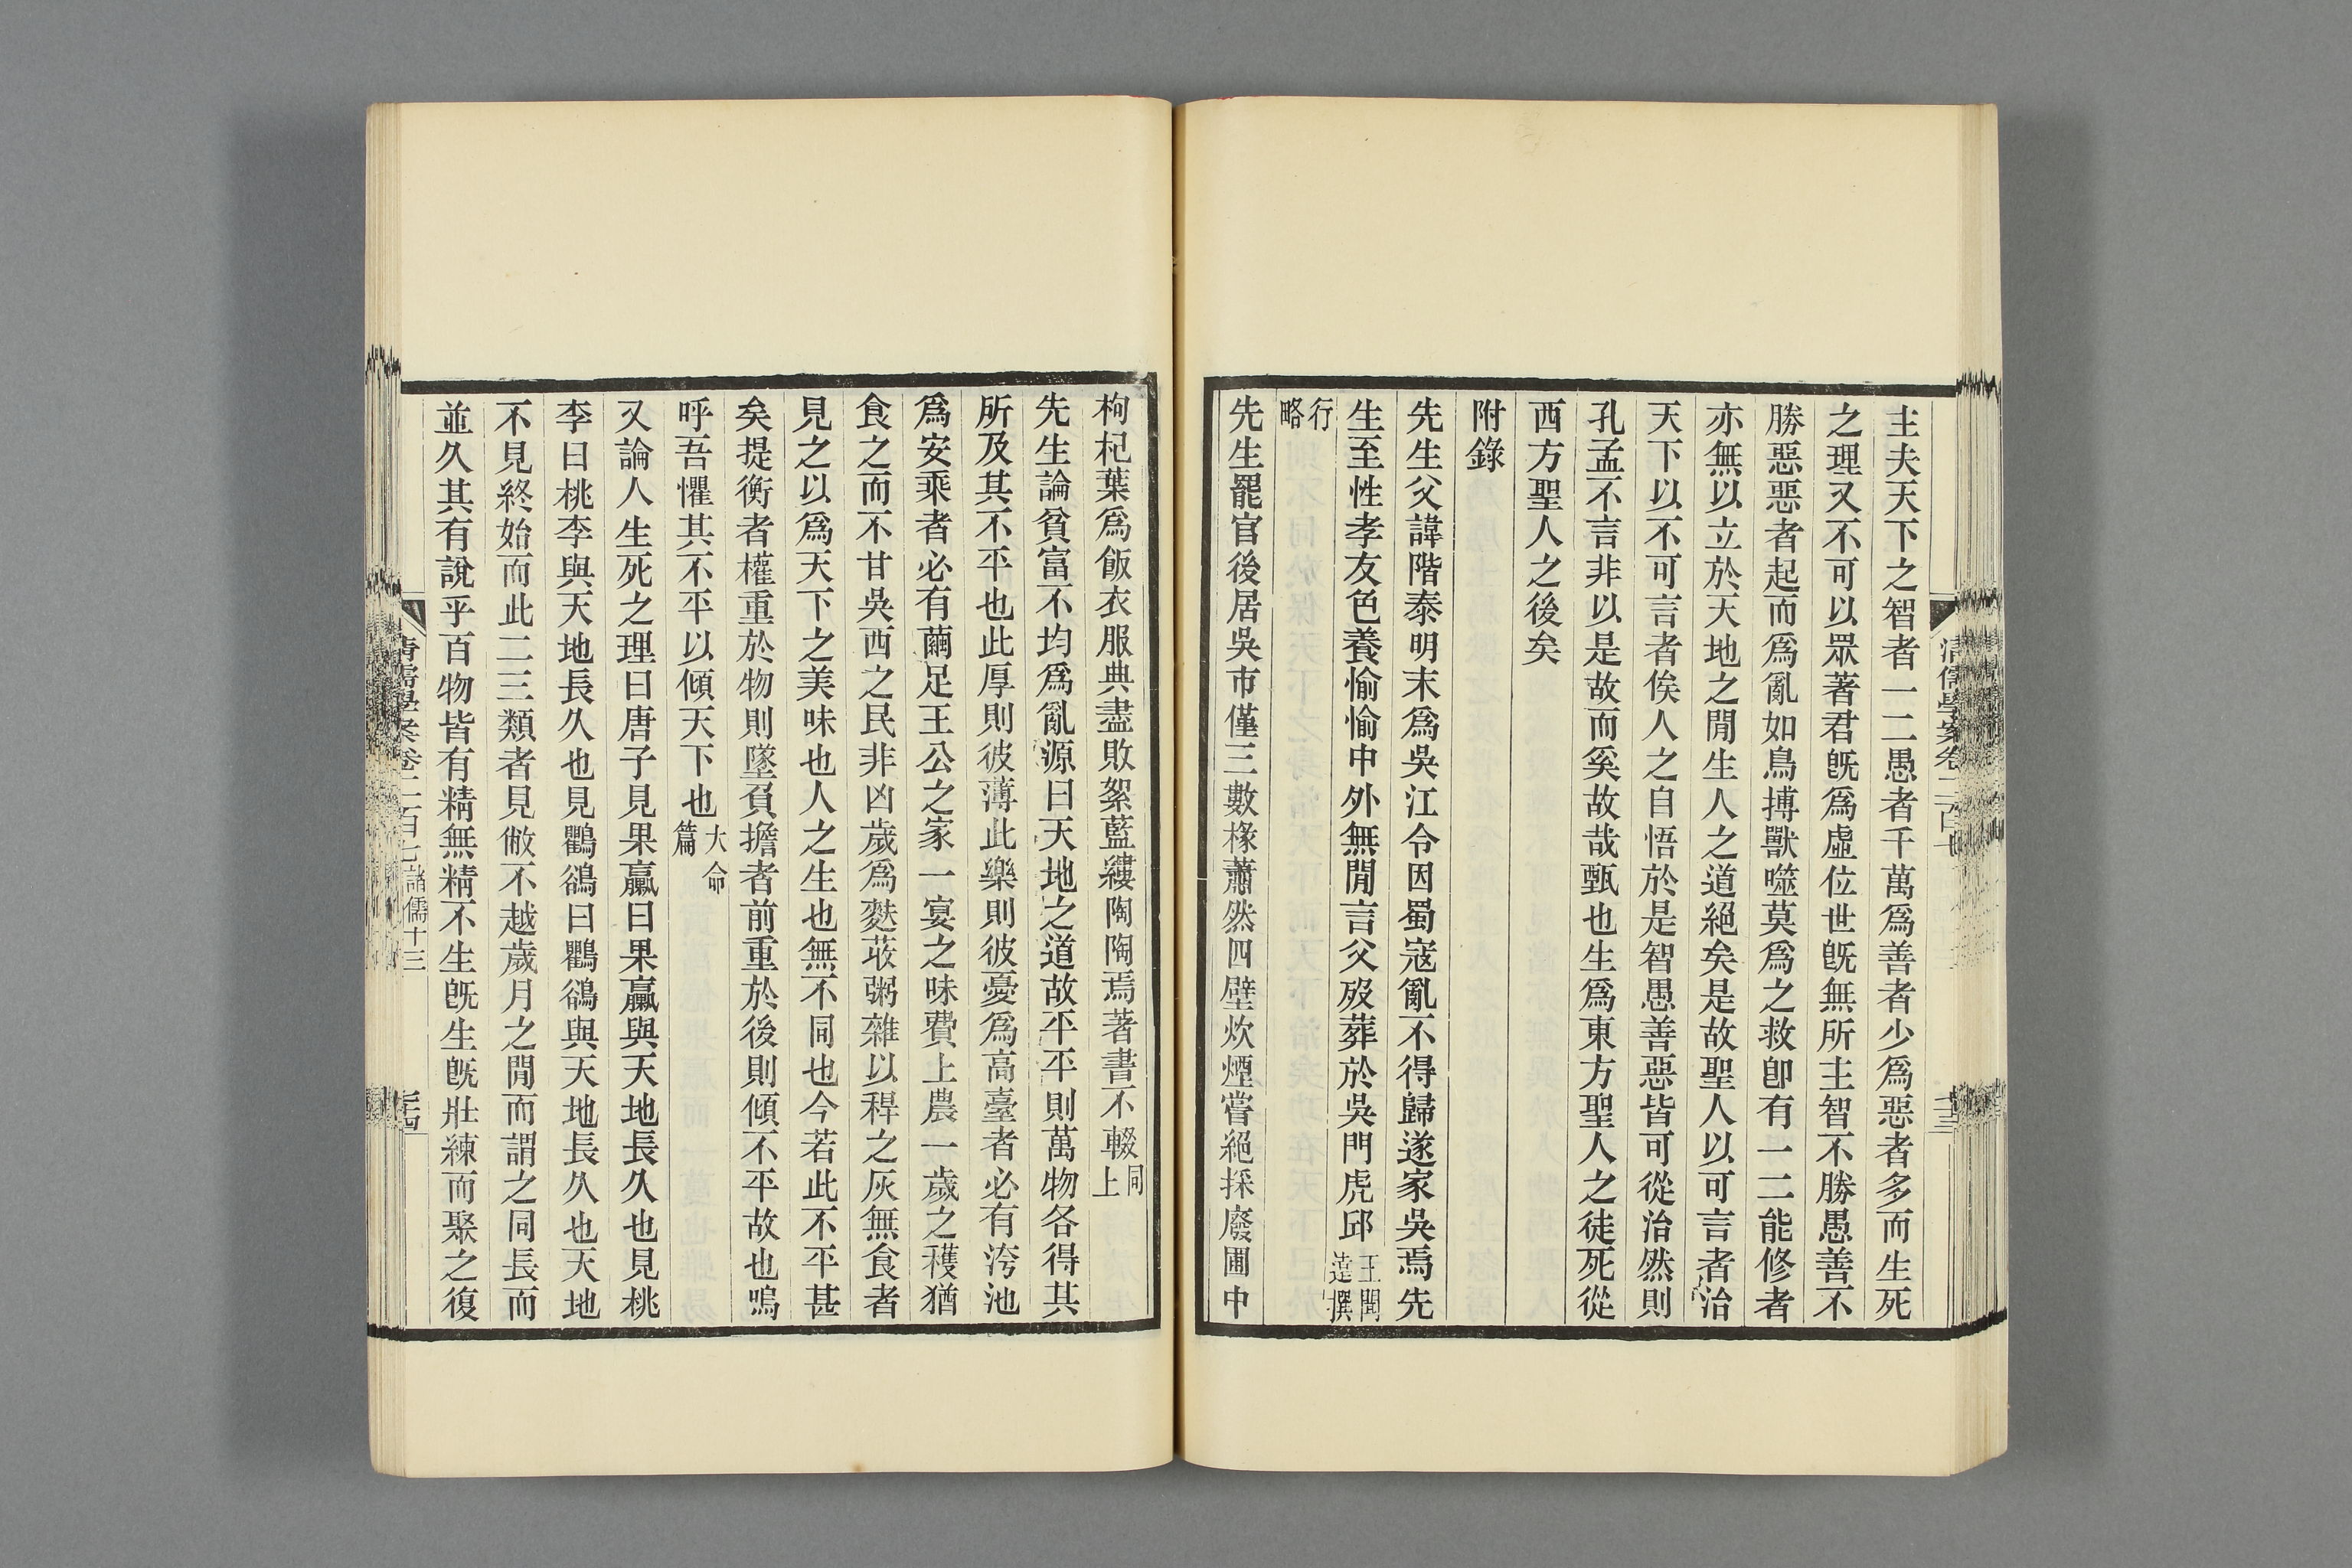 主夫天下之智者一二愚者千萬爲善者少爲惡者多而生死
之理又不可以眾著君旣爲虛位世旣無所主智不勝愚善不
勝惡惡者起而爲亂如鳥搏獸噬莫爲之救卽有一二能修者
亦無以立於天地之閒生人之道絕矣是故聖人以可言者治
天下以不可言者俟人之自悟於是智愚善惡皆可從治然則
孔孟不言非以是故而奚故哉甄也生爲東方聖人之徒死從
西方聖人之後矣
附錄
先生父諱階泰明末爲吳江令因蜀寇亂不得歸遂家吳焉先
生至性孝友色養愉愉中外無閒言父歿葬於吳門虎邱王聞遠撰
行略
先生罷官後居吳市僅三數椽蕭然四壁炊煙嘗絕採廢圃中
枸杞葉爲飯衣服典盡敗絮藍縷陶陶焉著書不輟同上
先生論貧富不均爲亂源曰天地之道故平平則萬物各得其
所及其不平也此厚則彼薄此樂則彼憂爲高臺者必有洿池
爲安乘者必有繭足王公之家一宴之味費上農一歲之穫猶
食之而不甘吳西之民非凶歲爲麩䓈粥雜以稗之灰無食者
見之以爲天下之美味也人之生也無不同也今若此不平甚
矣提衡者權重於物則墜負擔者前重於後則傾不平故也嗚
呼吾懼其不平以傾天下也大命篇
又論人生死之理曰唐子見果臝曰果臝與天地長久也見桃
李曰桃李與天地長久也見鸜鵒曰鸜鵒與天地長久也天地
不見終始而此二三類者見敝不越歲月之閒而謂之同長而
並久其有說乎百物皆有精無精不生旣生旣壯練而聚之復
清儒學案卷二百七 諸儒十三